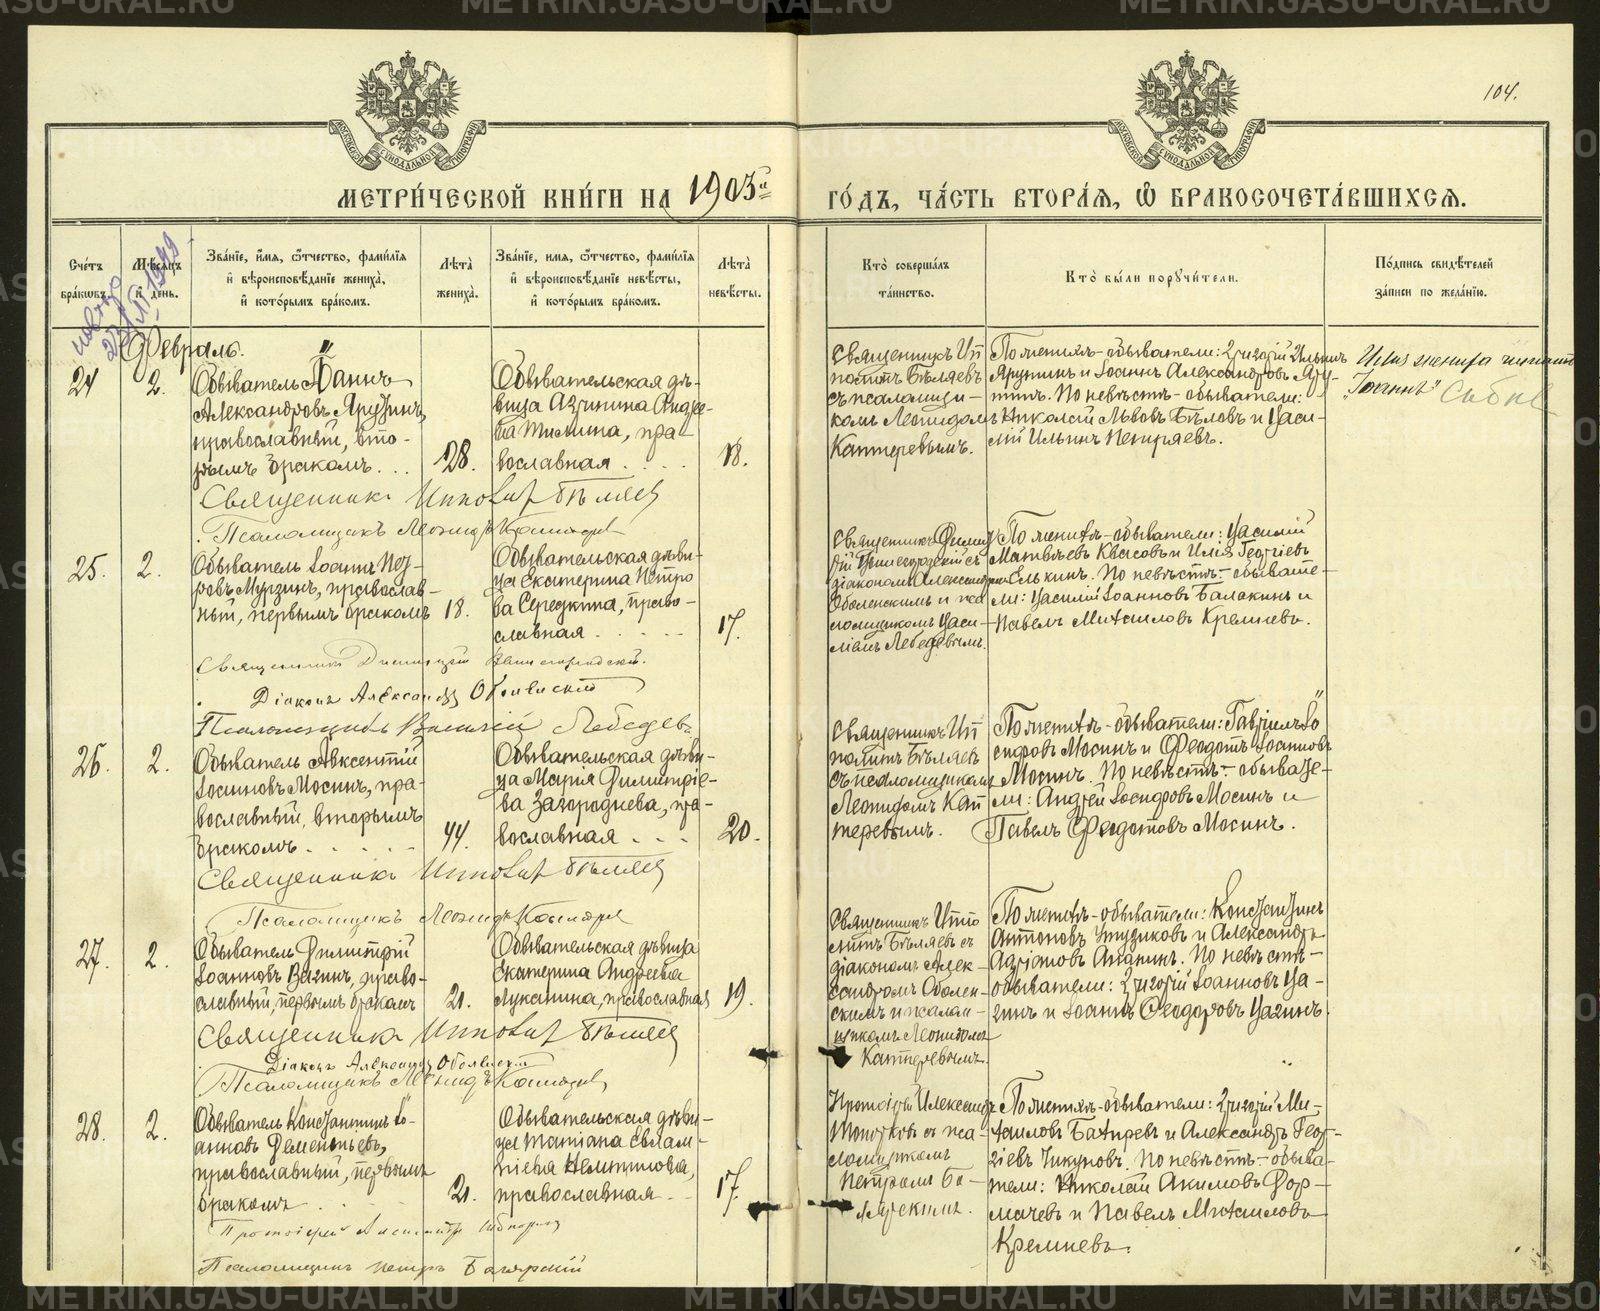 METRIKI.GASO-URAL.RU
104.
МОСКОВСКОЙ СУНОДАЛЬНОЙ ТИПОГРАФІИ
МОСКОВСКОЙ СУНОДАЛЬНОЙ ТИПОГРАФІИ
МЕТРИ́ЧЕСКОЙ КНИ́ГИ НА 1903й
ГО́ДЪ, ЧА́СТЬ ВТОРА́Я, Ѿ БРАКОСОЧЕТА́ВШИХСЯ.
Сче́тъ бра́ковъ.
Мѣ́сяцъ и҆ де́нь.
Зва́ніе, и҆́мя, ѻ҆́тчество, фами́лія
и҆ вѣроисповѣ́даніе жениха̀,
и҆ кото́рымъ бра́комъ.
Лѣ́та жениха̀.
Зва́ніе, и҆мя, ѻ҆́тчество, фами́лія
и҆ вѣроисповѣ́даніе невѣ́сты,
и҆ кото́рымъ бра́комъ.
Лѣ́та невѣ́сты.
Кто̀ соверша́лъ
та́инство.
Кто̀ бы́ли поручи́тели.
По́дпись свидѣ́телей
за́писи по жела́нію.
Февраль.
24
2.
Обыватель
Александровъ Ярутинъ,
православный, вто-
рымъ бракомъ...
28.
Обывательская дѣ-
вица Агрипина Андре-
ева Тимина, пра-
вославная....
18.
Священникъ Ип
политъ Бѣляевъ
съ псаломщи-
комъ Леонидомъ
Каптеревымъ.
По женихѣ-обыватели: Григорій Ильинъ
Ярутинъ и Іоаннъ Александровъ Яру-
тинъ. По невѣстѣ-обыватели:
Николай Львовъ Бѣловъ и Васи-
лій Ильинъ Петряевъ.
Имя жениха читать
"Іоаннъ"
Священникъ Ипполитъ Бѣляевъ
Псаломщикъ Леонидъ Каптеревъ
25.
2.
Обыватель Іоаннъ Пет-
ровъ Мурзинъ, православ-
ный, первымъ бракомъ
18.
Обывательская дѣви-
ца Екатерина Петро
ва Середкина, право-
славная.....
17.
Священникъ Дими
трій Вышегородскій съ
діакономъ Александромъ
Оболенскимъ и пса
ломщикомъ Васи-
ліемъ Лебедевымъ.
По женихѣ-обыватели: Василій
Матвѣевъ Квасовъ и Илія Георгіевъ
Елькинъ. По невѣстѣ-обывате-
ли: Василій Іоанновъ Балакинъ и
Павелъ Михаиловъ Кремневъ.
Священникъ Димитрій Вышегородскій.
Діаконъ Александръ Оболенскій
Псаломщикъ Василій Лебедевъ
26.
2.
Обыватель Авксентій
Іоанновъ Мосинъ, пра-
вославный, вторымъ
бракомъ.....
44.
Обывательская дѣви-
ца Марія Димитріе-
ва Загороднева, пра-
вославная...
20.
Священникъ Ип
политъ Бѣляевъ
съ псаломщикомъ
Леонидомъ Кап
теревымъ.
По женихѣ-обыватели: Гавріилъ Іо
сифовъ Мосинъ и Феодотъ Іоанновъ
Мосинъ. По невѣстѣ-обывате-
ли: Андрей Іосифовъ Мосинъ и
Павелъ Феодотовъ Мосинъ.
Священникъ Ипполитъ Бѣляевъ
Псаломщикъ Леонидъ Каптеревъ
27.
2.
Обыватель Димитрій
Іоанновъ Вагинъ, право-
славный, первымъ бракомъ
21.
Обывательская дѣвица
Екатерина Андреева
Луканина, православная
19.
Священникъ Иппо
литъ Бѣляевъ съ
діакономъ Алек-
сандромъ Оболен-
скимъ и псалом-
щикомъ Леонидомъ
Каптеревымъ.
По женихѣ-обыватели: Константинъ
Антоновъ и Александръ
Адріановъ Ананинъ. По невѣстѣ-
обыватели: Григорій Іоанновъ Ва-
гинъ и Іоаннъ Феодоровъ Вагинъ.
Священникъ Ипполитъ Бѣляевъ
Діаконъ Александръ Оболенскій
Псаломщикъ Леонидъ Каптеревъ
28.
2.
Обыватель Константинъ Іо-
анновъ Дементьевъ,
православный, первымъ
бракомъ
21.
Обывательская дѣви-
ца Татіана Евлам-
піева
православная..
17.
Протоіерей Александръ
съ пса-
ломщикомъ
Петромъ Ба-
гярскимъ.
По женихѣ-обыватели: Григорій Ми-
хаиловъ Батыревъ и Александръ Геор-
гіевъ Чикуновъ. По невѣстѣ-обыва-
тели: Николай Акимовъ Фор-
мачевъ и Павелъ Михаиловъ
Кремневъ.
Протоіерей Александръ
Псаломщикъ Петръ Багярскій